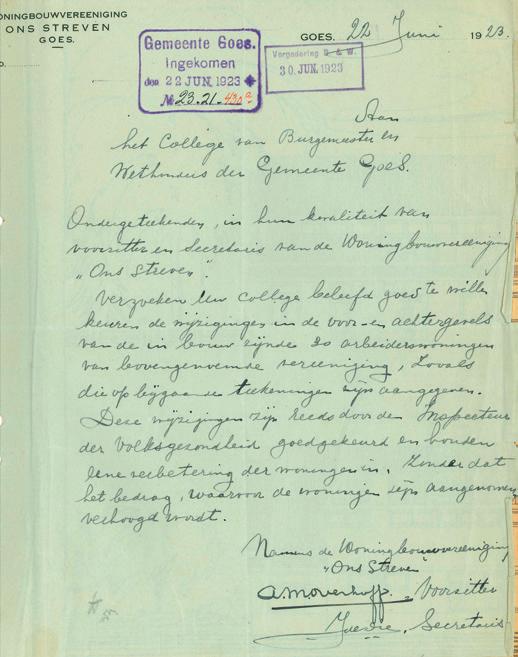 ONINGBOUWVEREENIGING
ONS STREVEN
GOES.
GOES, 22 Juni 1923.
Gemeente Goes.
Ingekomen
den 22 JUN. 1923
№ 23.21.
Vergadering B. & W.
30 JUN. 1923
Aan
het College van Burgemeester en
Wethouders der Gemeente Goes.
Ondergeteekenden, in hun kwaliteit van
voorzitter en Secretaris van de Woningbouwvereeniging
"Ons Streven".
Verzoeken Uw College beleefd goed te willen
keuren de wijzigingen in de voor- en achtergevels
van de in bouw zijnde arbeiderswoningen
van bovengenoemde vereeniging, zooals
die op bijgaande teekeningen zijn aangegeven.
Deze wijzigingen zijn reeds door den Inspecteur
der Volksgezondheid goedgekeurd en houden
eene verbetering der woningen in, zonder dat
het bedrag, waarvoor de woningen zijn aangenomen
verhoogd wordt.
Namens de Woningbouwvereeniging
"Ons Streven"
A.M. Overhoff. Voorzitter
Secretaris